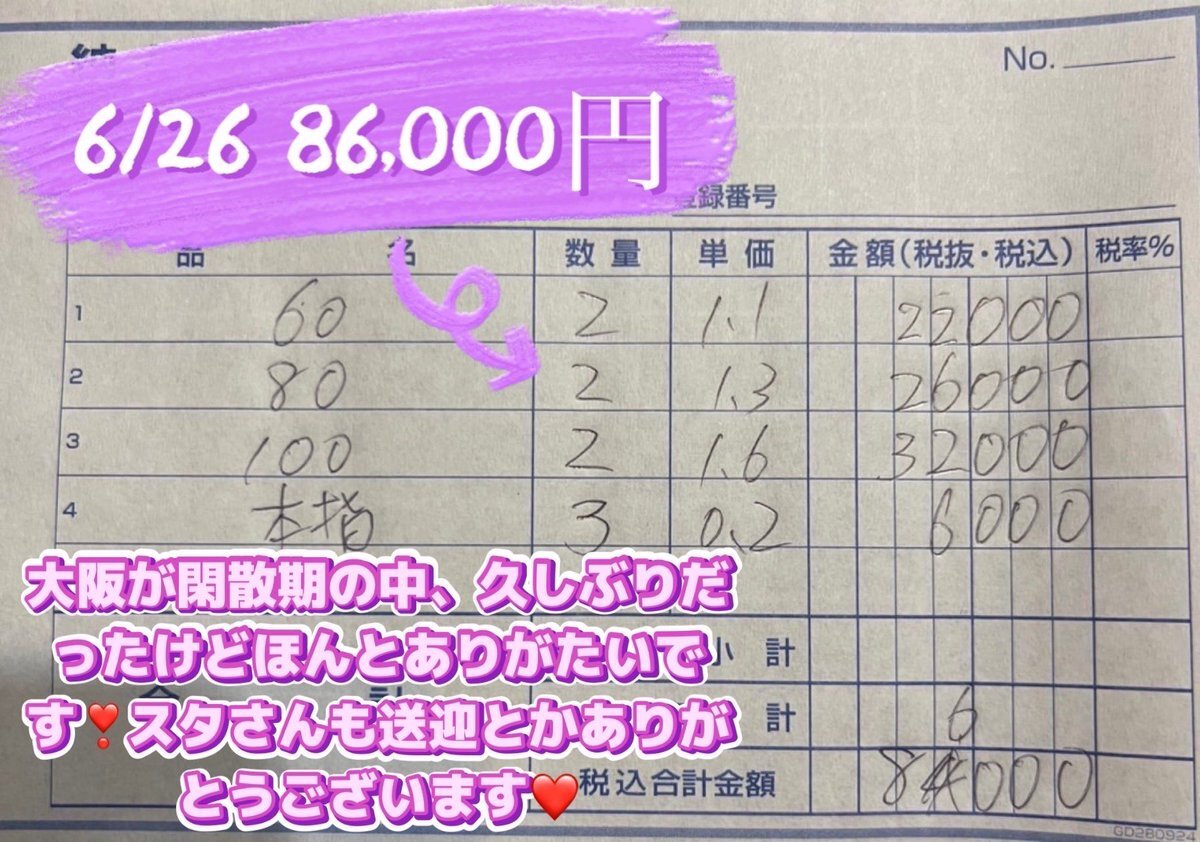 No.
6/26 86,000円
録番号
品 名 数量 単価 金額(税抜・税込) 税率%
1 60 2 1.1 22000
2 80 2 1.3 26000
3 100 2 1.6 32000
4 本指 3 0.2 6000
大阪が閑散期の中、久しぶりだ
ったけどほんとありがたいで
す❣️スタさんも送迎とかありが
とうございます❤️
小計
計 6
税込合計金額 84000
GD280924